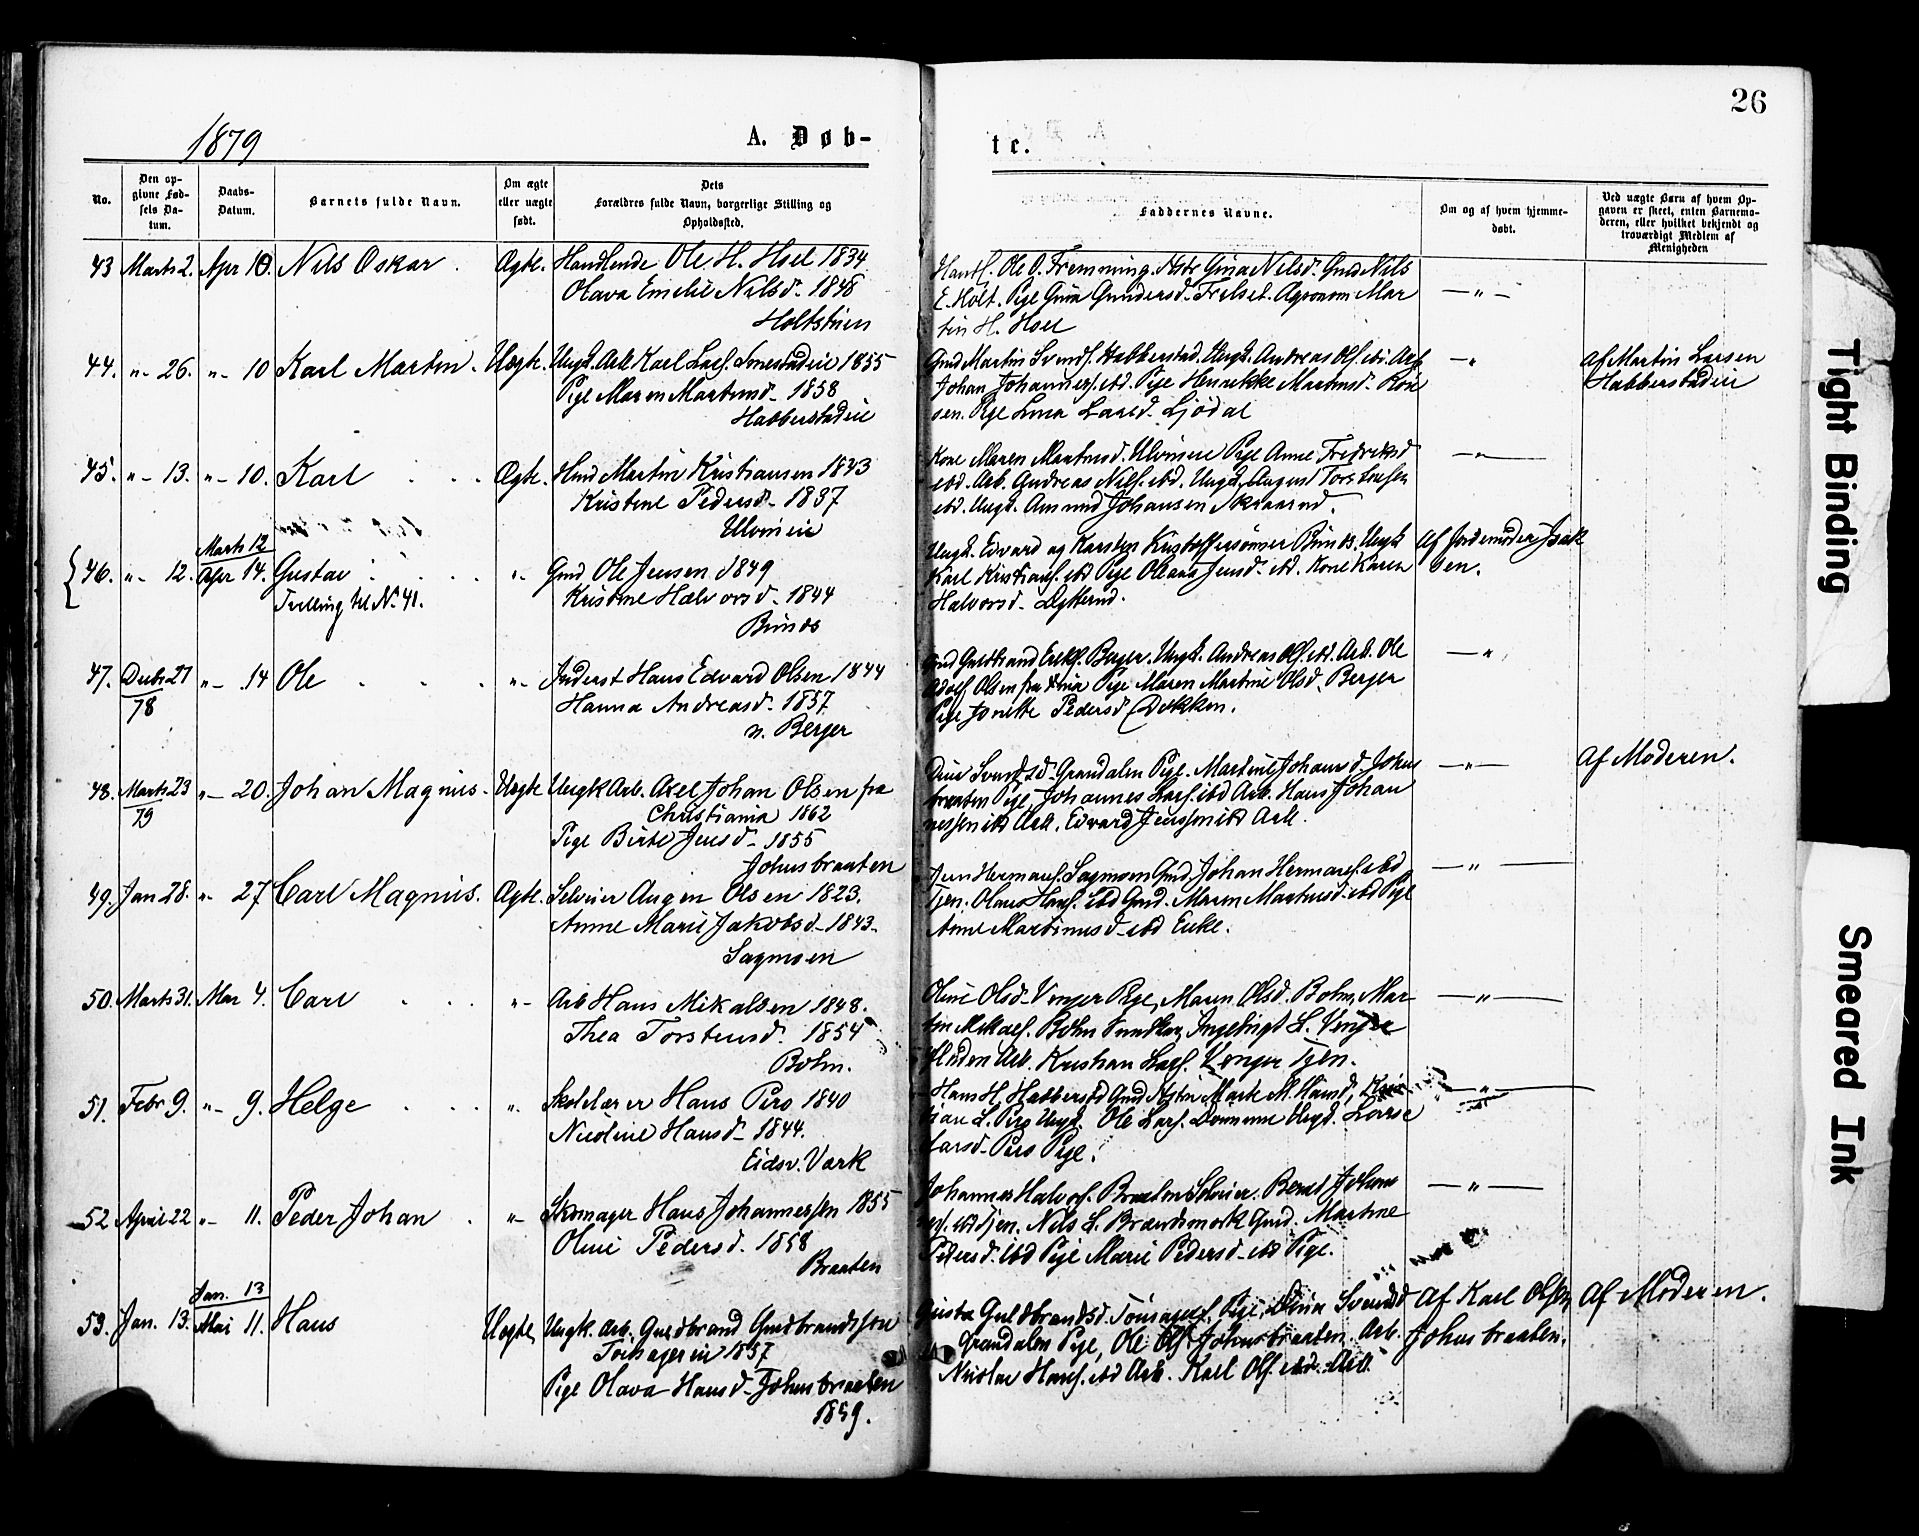 26
1879
A. Døb-
te.
No.
Den op-
givne Fød-
sels Da-
tum.
Daabs-
Datum.
Barnets fulde Navn.
Om ægte
eller uægte
født.
Dets
Forældres fulde Navn, borgerlige Stilling og
Opholdssted.
Faddernes Navne.
Om og af hvem hjemme-
døbt.
Ved uægte Barn af hvem Op-
gaven er skeet, enten Barnemo-
deren, eller hvilket bekjendt og
troværdigt Medlem af
Menigheden
43 Marts 2. Apr 10. Nils Oskar. Ægte. Handlende Ole H. Hoel 1834
Olava Emelie Nilsd. 1848
Holtstuen
Ole O. Fremming. Gina Nilsd. Gmd Nils
E. Holt. Pige Gina Gundersd. Agronom Mar
tin H. Hoel
— " —
44. "- 26. "- 10 Karl Martin. Uægte. Ungk. Arb. Karl Lars. 1855
Pige Maren Martinsd. 1858
Habberstadeie
Gmd Martin Svends. Habberstad. Ungk. Andreas Ols. ibd. Arb
Johan Johanness. ibd. Pige Henrikke Martinsd.
sen. Pige Lina Larsd. Ljødal
— "
Af Martin Larsen
Habberstadeie
45. "- 13. "- 10. Karl Ægte. Hmd Martin Kristiansen 1833
Kristine Pedersd. 1837
Ulvineie
Kone Maren Martinsd. Ulvineie Pige Anne Fredriksd
ibd. Arb. Andreas Nils. ibd. Ungk. August Torstensen
ibd. Ungk. Amund Johansen
— " —
46. "- 12. Marts 12
Apr 14. Gustav "- Gmd Ole Jensen 1849
Tvilling til No 41.
Kristine Halvorsd. 1844
Bunæs
Ungk. Edvard og Karsten Kristoffersønner Bunæs. Ungk
Karl Kristians. ibd Pige Oleana Jensd. ibd. Kone Karen
Halvorsd.
Af Jordemoder Isak
sen.
47. Decb 27
78 "- 14 Ole "- Inderst Hans Edvard Olsen 1844
Hanna Andreasd. 1857
n. Berger
Gmd Guldbrand Eriks. Berger. Ungk. Andreas Ols. ibd. Arb. Ole
Adolf Olsen Pige Maren Martine Olsd. Berger
Pige Jonette Pedersd Dokken.
— "
48. Marts 23
79 "- 20. Johan Magnus. Uægte Ungk Arb. Axel Johan Olsen fra
Christiania 1862
Pige Birte Jensd. 1855
Johnsbraaten
Dina Svendsd. Grandalen Pige. Martine Johannd. Johns
braaten Pige, Johannes Lars. ibd Arb. Hans Johan
nessen ibd Arb. Edvard Jenssen ibd Arb.
— " —
Af Moderen.
49. Jan 28. "- 27 Carl Magnus. Ægte. Selveier Augen Olsen 1823.
Anne Marie Jakobsd. 1843.
Sagmoen
Hermans. Sagmoen Gmd. Johan Hermans. ibd
Tjen. Olaus Hans. ibd Gmd. Maren Martinsd. ibd Pige
Anne Martinusd. ibd Enke.
— " —
50. Marts 31. Mai 4. Carl "- Arb Hans Mikalsen 1848.
Thea Torstensd. 1854
Bohn.
Oline Olsd. Venger Pige, Maren Olsd. Bohn, Mar-
tin Mikals. Bohn Ingebrigt L. Venger
Arb. Kristian Lars. Venger Tjen.
— " —
51. Febr 9. "- 9. Helge "- Skolelærer Hans Piro 1840
Nicoline Hansd. 1844.
Eidsv. Værk
Hans H. Habberstad Gmd Marte M. Hansd,
L. Piro Ungk. Ole Lars. Ungk. Lovise
Larsd. Piro Pige.
— " —
52. April 22 "- 11. Peder Johan "- Skomager Hans Johannessen 1855
Oline Pedersd. 1858
Braaten
Johannes Halvors. Braaten Selveier. Bernt Johan
nes. ibd Tjen. Nils L. Brændsmork Gmd. Martine
Pedersd. ibd Pige Marie Pedersd. ibd Pige.
— " —
53. Jan. 13. Jan. 13
Mai 11. Hans Uægte, Ungk. Arb. Guldbrand Guldbrandssen
1857
Pige Olava Hansd. Johnsbraaten
1859.
Guldbrandsd. Pige, Dina Svendsd
Grandalen Pige, Ole Ols. Johnsbraaten. Arb.
Nicolai Hans. ibd Arb. Karl Ols. ibd. Arb.
Af Karl Olsen
Johnsbraaten.
Af Moderen.
Tight Binding
Smeared Ink